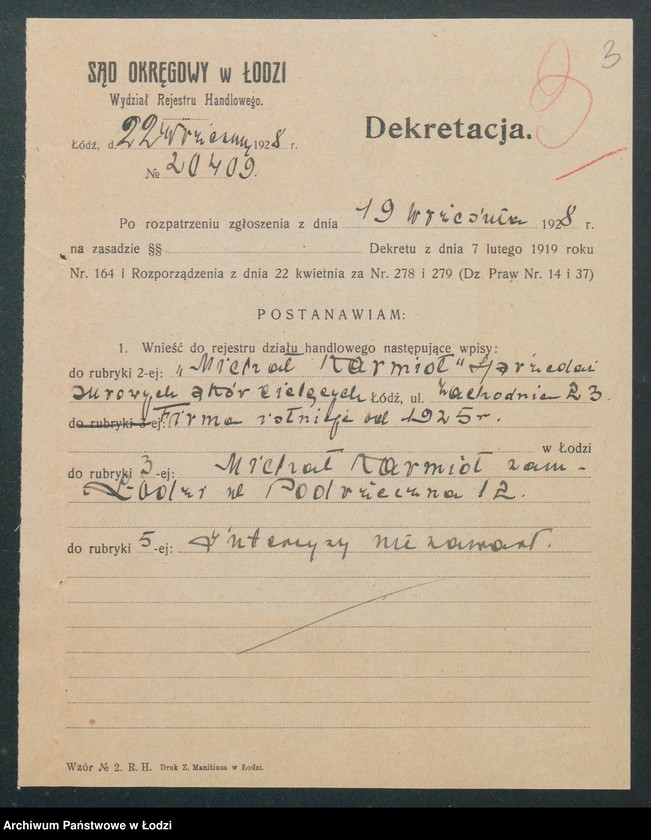 3
SĄD OKRĘGOWY w ŁODZI
Wydział Rejestru Handlowego.
Dekretacja.
Łódź, d. 22 września 1928 r.
№ 20409.
Po rozpatrzeniu zgłoszenia z dnia 19 września 1928 r.
na zasadzie §§ Dekretu z dnia 7 lutego 1919 roku
Nr. 164 i Rozporządzenia z dnia 22 kwietnia za Nr. 278 i 279 (Dz. Praw Nr. 14 i 37)
POSTANAWIAM:
1. Wnieść do rejestru działu handlowego następujące wpisy:
do rubryki 2-ej: „Michał Karmioł" Sprzedaż
surowych skór cielęcych Łódź, ul. Zachodnia 23.
do rubryki 3-ej: Firma istnieje od 1925 r.
w Łodzi
do rubryki 3-ej: Michał Karmioł zam.
Łodzi ul Podrzeczna 12.
do rubryki 5-ej: Intercyzy nie zawarł.
Wzór № 2. R. H. Druk Z. Manitiusa w Łodzi.
Archiwum Państwowe w Łodzi